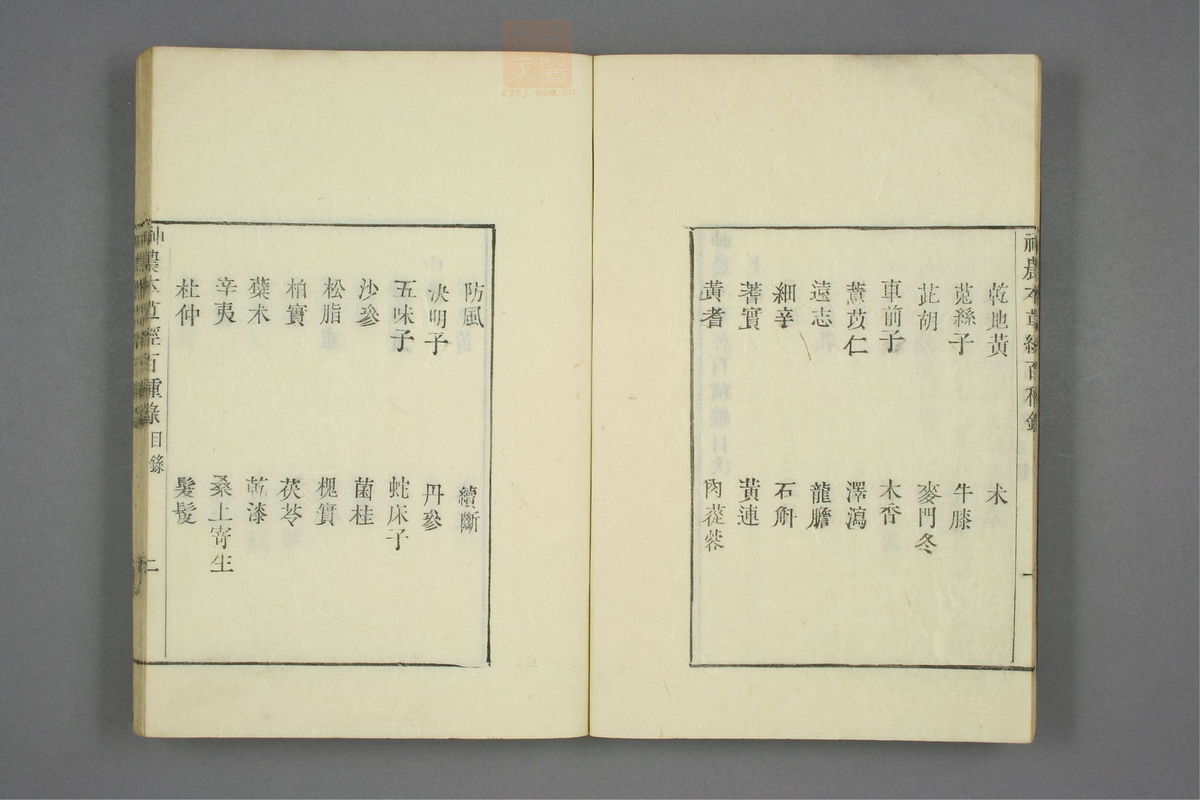 神農本草經百種錄 一
乾地黃 朮
菟絲子 牛膝
茈胡 麥門冬
車前子 木香
薏苡仁 澤瀉
遠志 龍膽
細辛 石斛
蓍實 黃連
黃耆 肉蓯蓉
防風 續斷
決明子 丹參
五味子 蛇床子
沙參 菌桂
松脂 槐實
柏實 茯苓
蘗木 乾漆
辛夷 桑上寄生
杜仲 髮髲
神農本草經百種錄 目錄 二